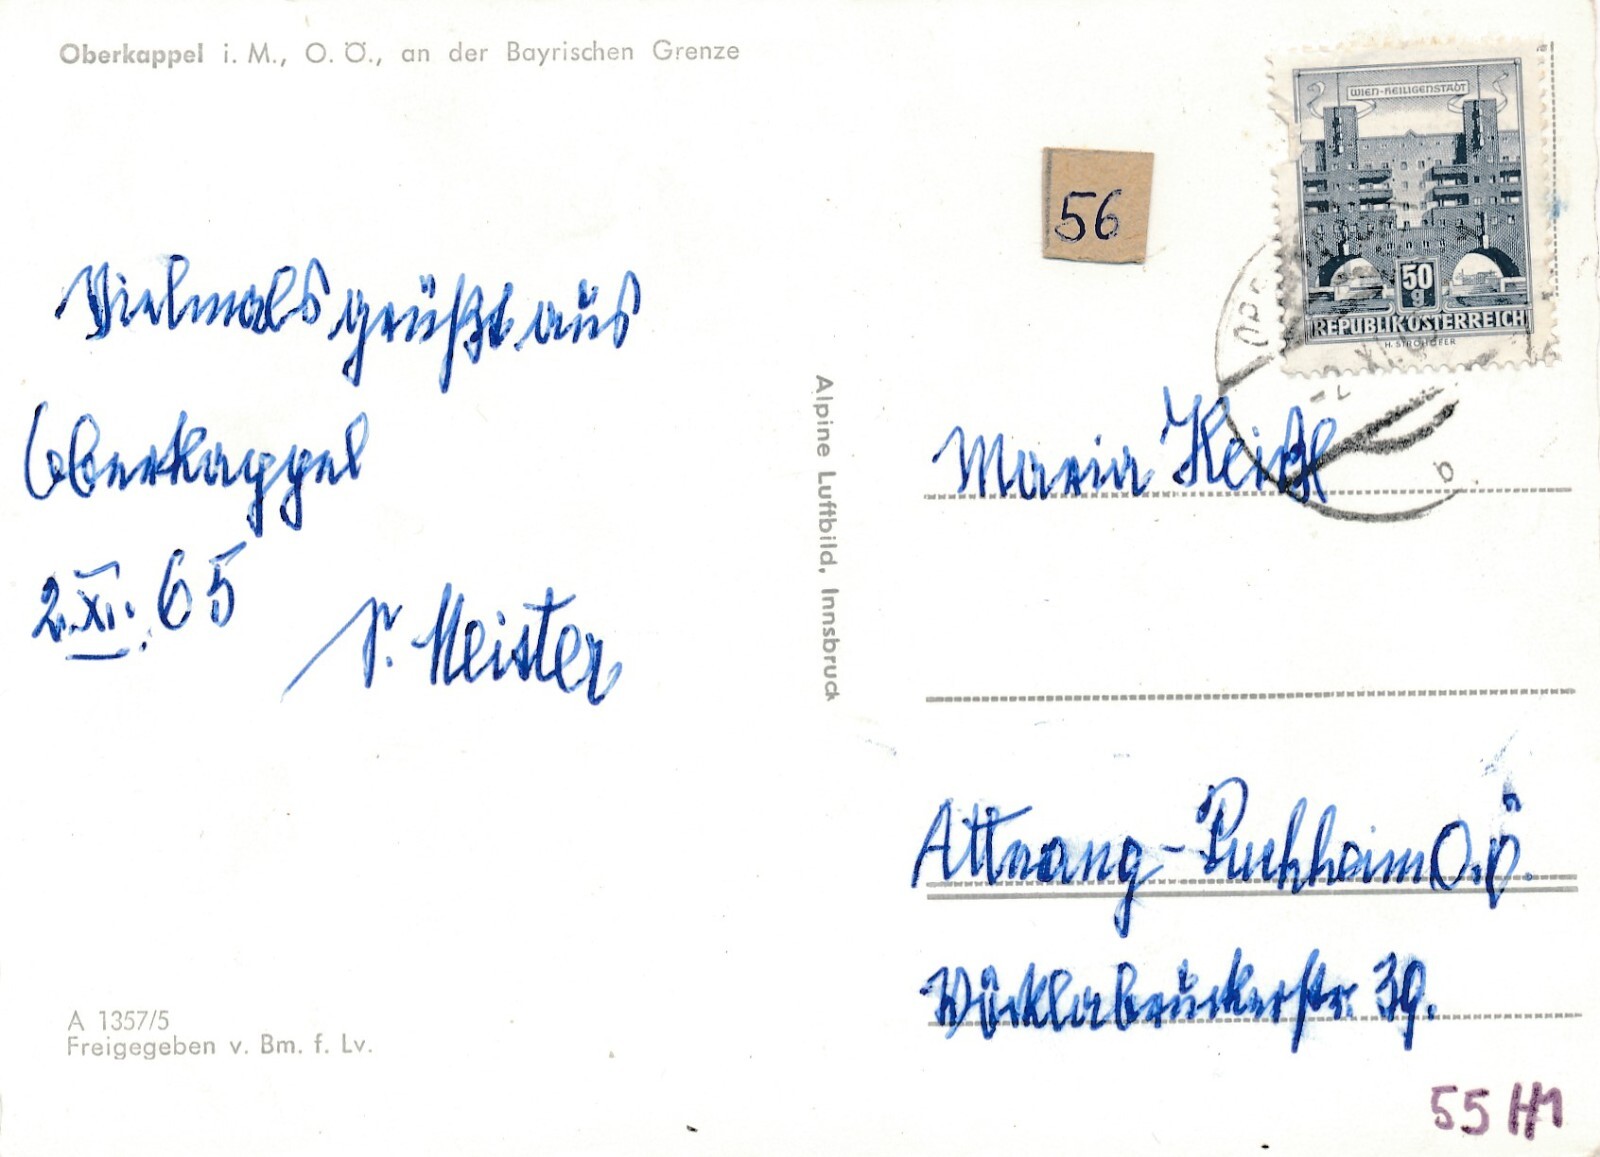 Oberkappel i. M., O. Ö., an der Bayrischen Grenze
Vielmals grüßt aus
Oberkappel
2. XI. 65
Meister
A 1357/5
Freigegeben v. Bm. f. Lv.
Alpine Luftbild, Innsbruck
56
WIEN-HEILIGENSTADT
50
g
REPUBLIK ÖSTERREICH
H. STROHOFER
Maria
Attnang-Puchheim O.Ö.
Vöcklabruckerstr. 39.
55 H1